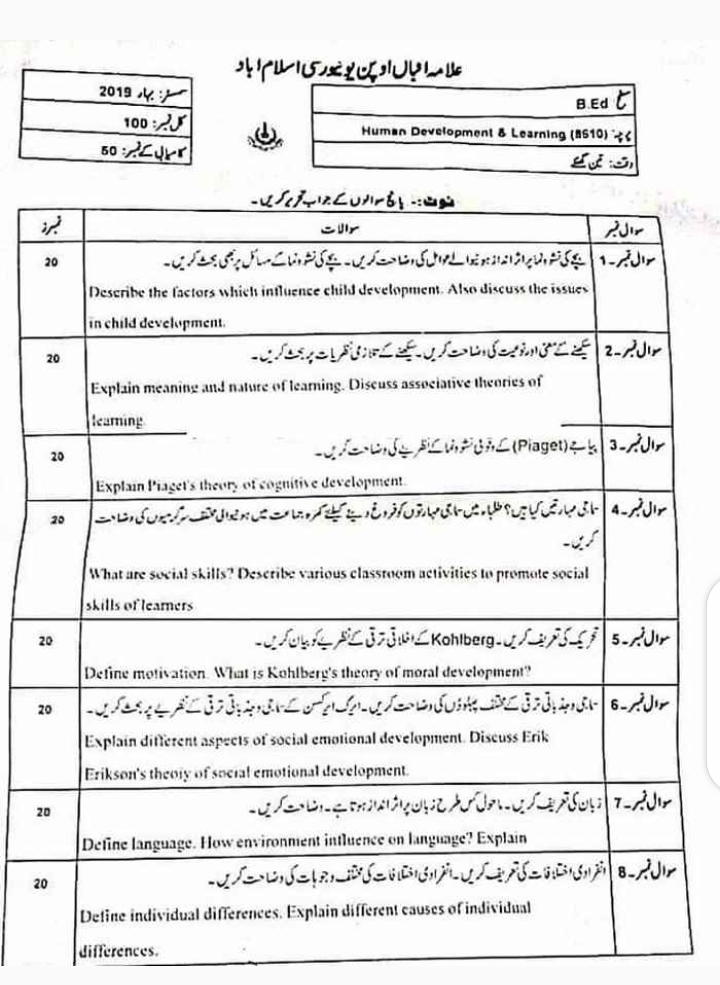 علامہ اقبال اوپن یونیورسٹی اسلام آباد
سطح B.Ed
پرچہ: Human Development & Learning (8610)
وقت: تین گھنٹے
سمسٹر: بہار 2019
کل نمبر: 100
کامیابی کے نمبر: 50
نوٹ:۔ پانچ سوالوں کے جواب تحریر کریں۔
سوال نمبر سوالات نمبرز
سوال نمبر۔1 بچے کی نشوونما پر اثر انداز ہونیوالے عوامل کی وضاحت کریں۔ بچے کی نشوونما کے مسائل پر بھی بحث کریں۔ 20
Describe the factors which influence child development. Also discuss the issues
in child development.
سوال نمبر۔2 سیکھنے کے معنی اور نوعیت کی وضاحت کریں۔ سیکھنے کے تلازمی نظریات پر بحث کریں۔ 20
Explain meaning and nature of learning. Discuss associative theories of
learning.
سوال نمبر۔3 پیاجے (Piaget) کے وقوفی نشوونما کے نظریے کی وضاحت کریں۔ 20
Explain Piaget's theory of cognitive development.
سوال نمبر۔4 سماجی مہارتیں کیا ہیں؟ طلباء میں سماجی مہارتوں کو فروغ دینے کیلئے کمرہ جماعت میں ہونیوالی مختلف سرگرمیوں کی وضاحت 20
کریں۔
What are social skills? Describe various classroom activities to promote social
skills of learners
سوال نمبر۔5 تحریک کی تعریف کریں۔ Kohlberg کے اخلاقی ترقی کے نظریے کو بیان کریں۔ 20
Define motivation. What is Kohlberg's theory of moral development?
سوال نمبر۔6 سماجی و جذباتی ترقی کے مختلف پہلوؤں کی وضاحت کریں۔ ایرک ایرکسن کے سماجی و جذباتی ترقی کے نظریے پر بحث کریں۔ 20
Explain different aspects of social emotional development. Discuss Erik
Erikson's theoiy of social emotional development.
سوال نمبر۔7 زبان کی تعریف کریں۔ ماحول کس طرح زبان پر اثر انداز ہوتا ہے۔ وضاحت کریں۔ 20
Define language. How environment influence on language? Explain
سوال نمبر۔8 انفرادی اختلافات کی تعریف کریں۔ انفرادی اختلافات کی مختلف وجوہات کی وضاحت کریں۔ 20
Define individual differences. Explain different causes of individual
differences.